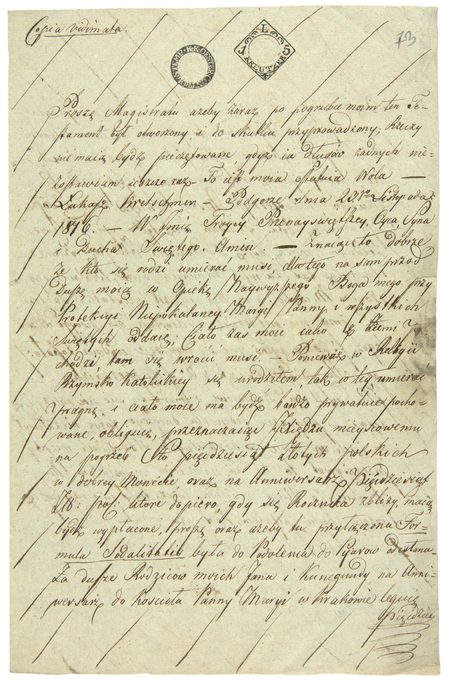 Copia vidimata.
73
Proszę Magistratu ażeby zaraz po pogrzebie moim ten Te-
stament był otworzony i do skutku przyprowadzony, Rzeczy
nie maią bydź pieczętowane gdyż ia długów żadnych nie-
zostawiam ieszcze raz To iest moia ostatnia Wola —
Łukasz Kretschmer — Podgorze dnia Listopada
1816 — W Imię Troycy Przenayświętszey, Oyca, Syna
i Ducha Świętego. Amen — Znaiąc to dobrze
że kto się rodzi umierać musi, dla tego na sam przód
Duszę moią w Opiekę Naywyższego Boga mego przy
Protekcyi Niepokalaney Maryi Panny i wszystkich
Świętych oddaię; Ciało zaś moie iako z Ziemi
chodzi tam się wrócić musi — Ponieważ w Religii
Rzymsko Katolickiey się urodziłem tak w tey umierać
pragnę, i ciało moie ma bydź bardzo prywatnie pocho-
wane, obliguię, przeznaczaiąc Xiędzu mieyscowemu
na pogrzeb Sto pięćdziesiąt złotych polskich
w dobrey Monecie oraz na Anniwersarz Pięćdziesiąt
które dopiero, gdy się Rocznica zbliży, maią
bydź wypłacone, proszę oraz ażeby tu przyłączona For-
mula Sodalitatis była do Podolenia do Piiarów odesłana
Za dusze Rodziców moich Jana i Kunegundy na Anni-
wersarz do Kościoła Panny Maryi w Krakowie